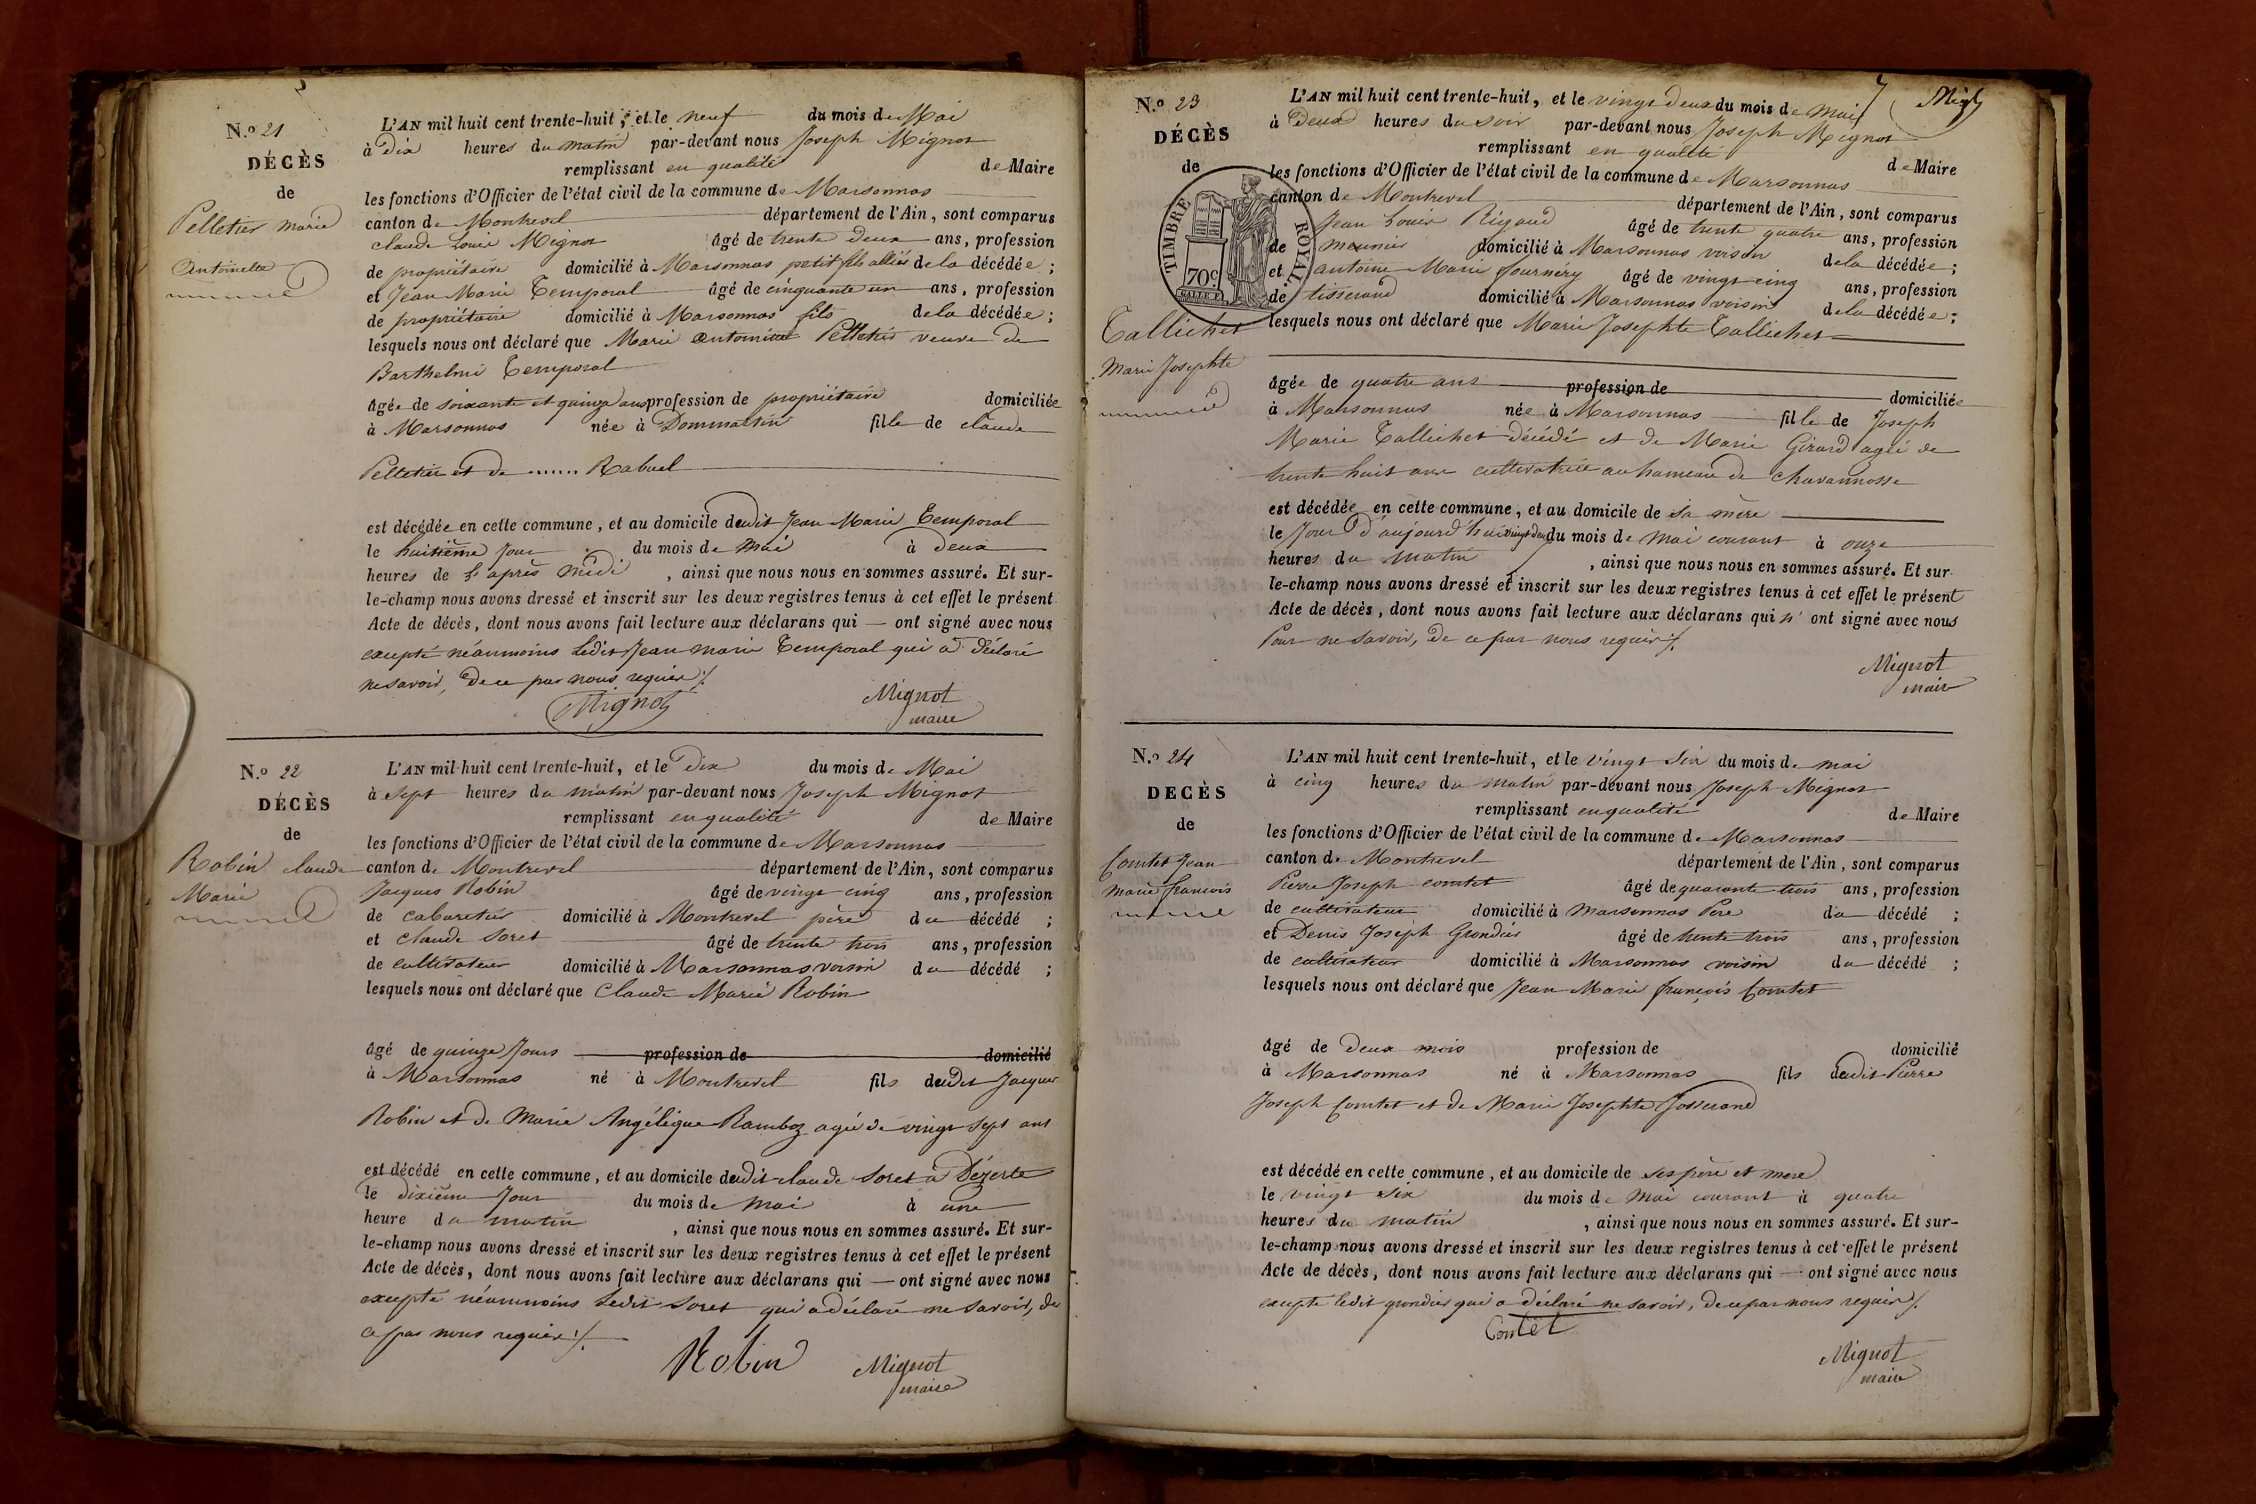 N.º 21
DÉCÈS
de
Pelletier Marie
Antoinette
L'AN mil huit cent trente-huit, et le neuf du mois de Mai
à Dix heures du matin par-devant nous Joseph Mignot
remplissant en qualité de Maire
les fonctions d'Officier de l'état civil de la commune de Marsonnas
canton de Montrevel département de l'Ain, sont comparus
Claude Louis Mignot âgé de trente deux ans, profession
de propriétaire domicilié à Marsonnas petit fils allié de la décédée ;
et Jean Marie Temporal âgé de cinquante un ans, profession
de propriétaire domicilié à Marsonnas fils de la décédée ;
lesquels nous ont déclaré que Marie Antoinette Pelletier veuve de
Barthelmi Temporal
âgée de soixante et quinze ans profession de propriétaire domiciliée
à Marsonnas née à Dommartin fille de Claude
Pelletier et de ...... Rabuel
est décédée en cette commune, et au domicile dudit Jean Marie Temporal
le huitième jour du mois de Mai à deux
heures de l'après midi, ainsi que nous nous en sommes assuré. Et sur-
le-champ nous avons dressé et inscrit sur les deux registres tenus à cet effet le présent
Acte de décès, dont nous avons fait lecture aux déclarans qui — ont signé avec nous
excepté néanmoins ledit Jean Marie Temporal qui a déclaré
ne savoir, de ce par nous requis ./.
Mignot Mignot
maire
N.º 22
DÉCÈS
de
Robin Claude
Marie
L'AN mil huit cent trente-huit, et le Dix du mois de Mai
à sept heures du matin par-devant nous Joseph Mignot
remplissant en qualité de Maire
les fonctions d'Officier de l'état civil de la commune de Marsonnas
canton de Montrevel département de l'Ain, sont comparus
Jacques Robin âgé de vingt cinq ans, profession
de cabaretier domicilié à Montrevel père du décédé ;
et Claude Soret âgé de trente trois ans, profession
de cultivateur domicilié à Marsonnas voisin du décédé ;
lesquels nous ont déclaré que Claude Marie Robin
âgé de quinze jours profession de domicilié
à Marsonnas né à Montrevel fils dudit Jacques
Robin et de Marie Angélique Ramboz agée de vingt sept ans
est décédé en cette commune, et au domicile dudit Claude Soret à Dézerte
le dixième jour du mois de mai à une
heure du matin, ainsi que nous nous en sommes assuré. Et sur-
le-champ nous avons dressé et inscrit sur les deux registres tenus à cet effet le présent
Acte de décès, dont nous avons fait lecture aux déclarans qui — ont signé avec nous
excepté néanmoins ledit Soret qui a déclaré ne savoir, de
ce par nous requis ./.
Robin Mignot
maire
N.º 23
DÉCÈS
de
TIMBRE ROYAL.
70 c
Tallichet
Marie Josephte
L'AN mil huit cent trente-huit, et le vingt deux du mois de mai
à Deux heures du soir par-devant nous Joseph Mignot
remplissant en qualité de Maire
les fonctions d'Officier de l'état civil de la commune de Marsonnas
canton de Montrevel département de l'Ain, sont comparus
Jean Louis Rigaud âgé de trente quatre ans, profession
de meunier domicilié à Marsonnas voisin de la décédée ;
et antoine Marie fournery âgé de vingt cinq ans, profession
de tisserand domicilié à Marsonnas voisin de la décédée ;
lesquels nous ont déclaré que Marie Josephte Tallichet
âgée de quatre ans profession de domiciliée
à Marsonnas née à Marsonnas fille de Joseph
Marie Tallichet décédé et de Marie Girard agée de
trente huit ans cultivatrice au hameau de Chavannosse
est décédée en cette commune, et au domicile de sa mère
le Jour d'aujourd'hui vingt deux du mois de Mai courant à onze
heures du matin, ainsi que nous nous en sommes assuré. Et sur-
le-champ nous avons dressé et inscrit sur les deux registres tenus à cet effet le présent
Acte de décès, dont nous avons fait lecture aux déclarans qui n'ont signé avec nous
Pour ne savoir, de ce par nous requis ./.
Mignot
maire
N.º 24
DÉCÈS
de
Comtet Jean
Marie françois
L'AN mil huit cent trente-huit, et le vingt six du mois de mai
à cinq heures du matin par-devant nous Joseph Mignot
remplissant en qualité de Maire
les fonctions d'Officier de l'état civil de la commune de Marsonnas
canton de Montrevel département de l'Ain, sont comparus
Pierre Joseph comtet âgé de quarante trois ans, profession
de cultivateur domicilié à Marsonnas Pere du décédé ;
et Denis Joseph Grondier âgé de trente trois ans, profession
de cultivateur domicilié à Marsonnas voisin du décédé ;
lesquels nous ont déclaré que Jean Marie françois Comtet
âgé de deux mois profession de domicilié
à Marsonnas né à Marsonnas fils dudit Pierre
Joseph Comtet et de Marie Josephte Josserand
est décédé en cette commune, et au domicile de ses père et mere
le vingt six du mois de Mai courant à quatre
heures du matin, ainsi que nous nous en sommes assuré. Et sur-
le-champ nous avons dressé et inscrit sur les deux registres tenus à cet effet le présent
Acte de décès, dont nous avons fait lecture aux déclarans qui — ont signé avec nous
excepté ledit grondier qui a déclaré ne savoir, de ce par nous requis ./.
Contet
Mignot
maire